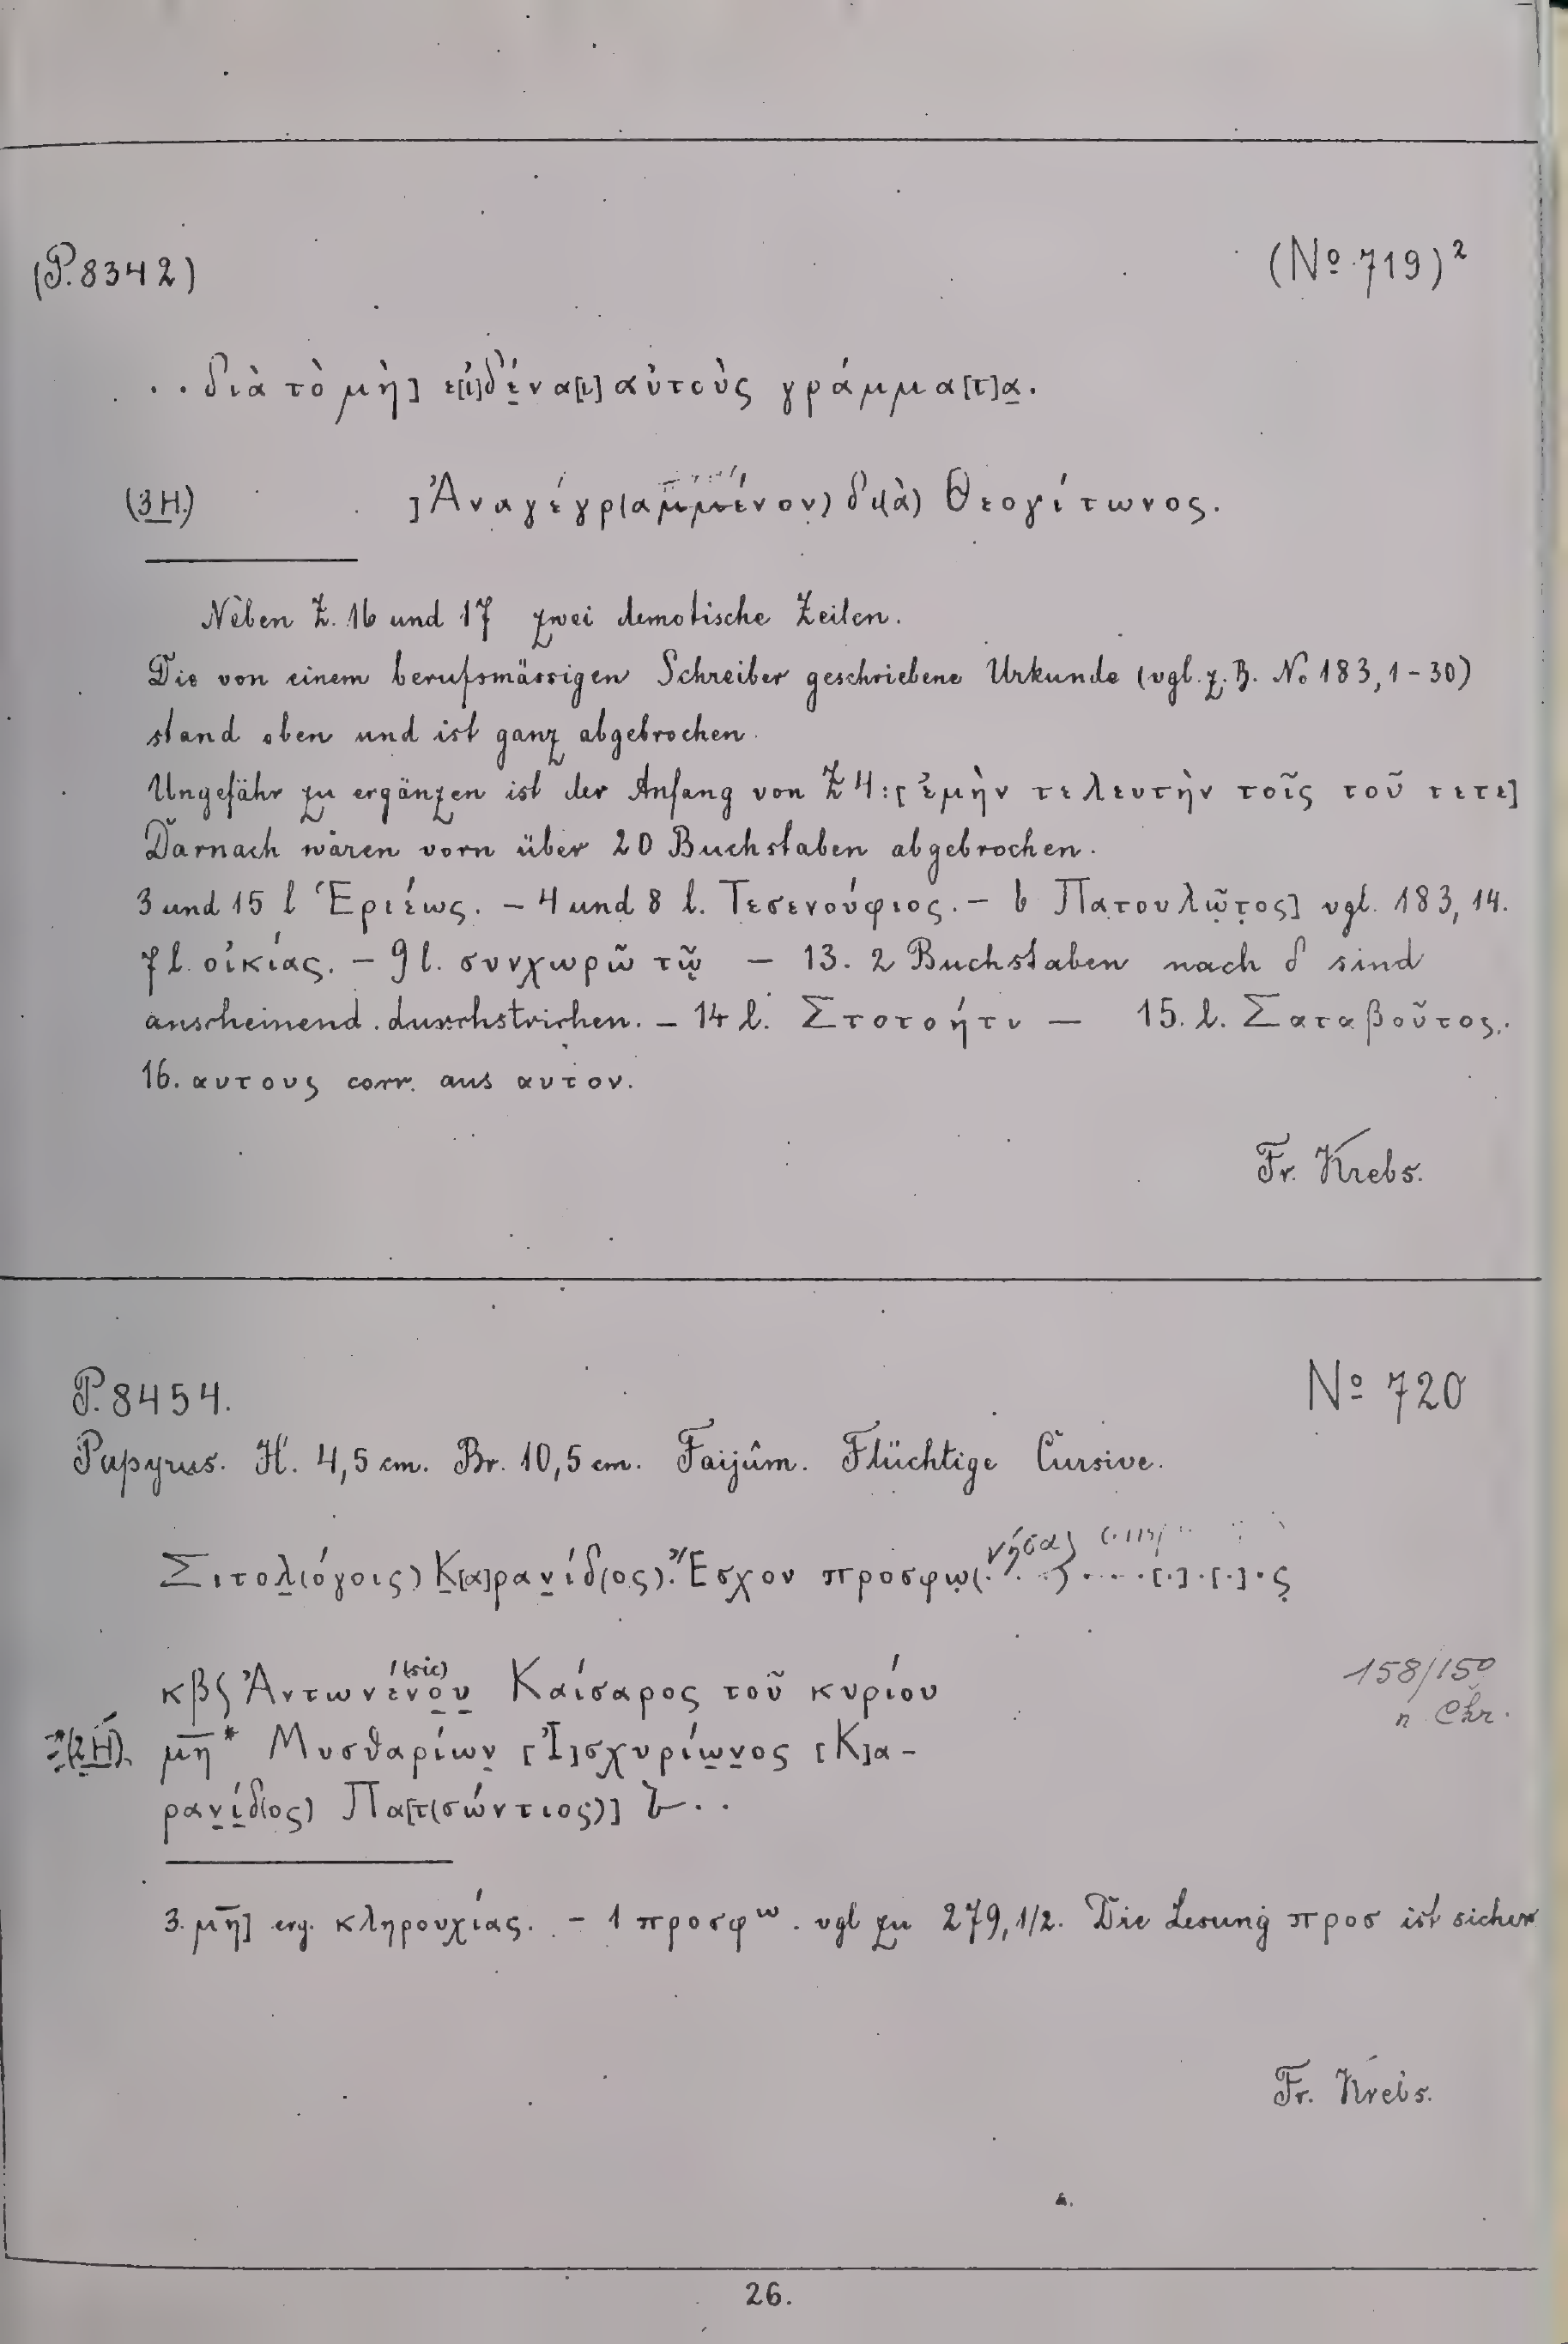 (P. 8342) (No 719)²
. . διὰ τὸ μὴ] ε[ἰ]δένα[ι] αὐτοὺς γράμμα[τ]α.
(3 H.) ]Ἀναγέγρ(αμμένον) δι(ὰ) Θεογίτωνος.
Neben Z. 16 und 17 zwei demotische Zeilen.
Die von einem berufsmässigen Schreiber geschriebene Urkunde (vgl. z. B. No 183, 1-30)
stand oben und ist ganz abgebrochen.
Ungefähr zu ergänzen ist der Anfang von Z 4: [ἐμὴν τελευτὴν τοῖς τοῦ τετε]
Darnach wären vorn über 20 Buchstaben abgebrochen.
3 und 15 l Ἑριέως. – 4 und 8 l. Τεσενούφιος. – 6 Πατουλῶτος] vgl. 183, 14.
7 l. οἰκίας. – 9 l. συνχωρῶ τῷ – 13. 2 Buchstaben nach δ sind
anscheinend durchstrichen. – 14 l. Στοτοήτι – 15. l. Σαταβοῦτος.
16. αυτους corr. aus αυτον.
Fr. Krebs.
P. 8454. No 720
Papyrus. H. 4,5 cm. Br. 10,5 cm. Faijûm. Flüchtige Cursive.
νήσας)
Σιτολ(όγοις) Κ[α]ρανίδ(ος). Ἔσχον προσφω(. . . .) . . . . [.] . [.] . ς
(sic)
κβʃ Ἀντωνένου Καίσαρος τοῦ κυρίου 158/159
n Chr.
(2 H.) μη* Μυσθαρίων [Ἰ]σχυρίωνος [Κ]α-
ρανίδ(ος) Πα[τ(σώντιος)] . .
3. μη] erg. κληρουχίας. – 1 προσφω. vgl zu 279, 1/2. Die Lesung προσ ist sicher
Fr. Krebs.
26.